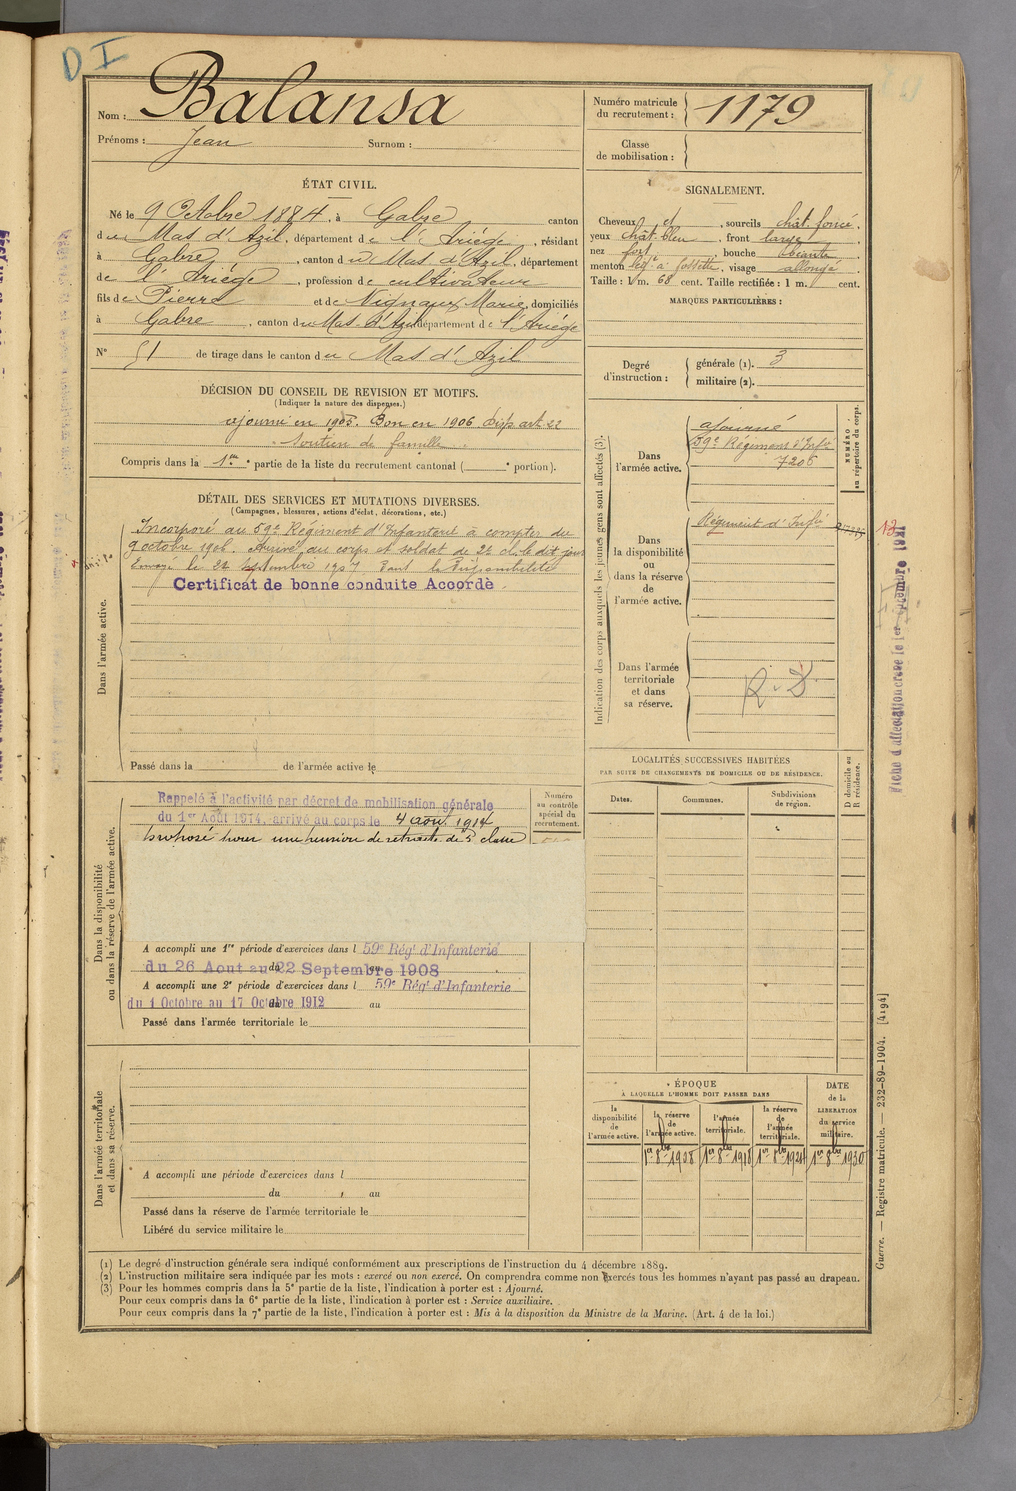 D I
Nom : Balansa
Prénoms : Jean Surnom :
Numéro matricule du recrutement : 1179
Classe de mobilisation :
ÉTAT CIVIL.
Né le 9 Octobre 1884, à Gabre canton
du Mas d'Azil, département de l'Ariége, résidant
à Gabre, canton du Mas d'Azil, département
de l'Ariége, profession de cultivateur
fils de Pierre et de Vignaux Marie, domiciliés
à Gabre, canton du Mas d'Azil département de l'Ariége
N° 51 de tirage dans le canton du Mas d'Azil
SIGNALEMENT.
Cheveux et, sourcils chât. foncé,
yeux chât. bleu, front large
nez fort, bouche
menton à fossette, visage allongé
Taille : 1 m. 68 cent. Taille rectifiée : 1 m. cent.
MARQUES PARTICULIÈRES :
Degré d'instruction :
générale (1). 3
militaire (2).
DÉCISION DU CONSEIL DE REVISION ET MOTIFS.
(Indiquer la nature des dispenses.)
ajourné en 1905. Bon en 1906 disp. art 22
soutien de famille
Compris dans la 1re partie de la liste du recrutement cantonal ( portion).
DÉTAIL DES SERVICES ET MUTATIONS DIVERSES.
(Campagnes, blessures, actions d'éclat, décorations, etc.)
Dans l'armée active.
Incorporé au 59e Régiment d'Infanterie à compter du
9 octobre 1906. Arrivé au corps et soldat de 2e cl. le dit jour
Envoyé le 24 septembre 1907 dans la disponibilité
Certificat de bonne conduite Accordé
Passé dans la de l'armée active le
Indication des corps auxquels les jeunes gens sont affectés (3).
NUMÉRO au répertoire du corps.
Dans l'armée active.
ajourné
59e Régiment d'Infie
7206
Dans la disponibilité ou dans la réserve de l'armée active.
Régiment d'Infie
Dans l'armée territoriale et dans sa réserve.
R. D.
Fiche d'affectation créée le 1er
Dans la disponibilité ou dans la réserve de l'armée active.
Numéro au contrôle spécial du recrutement.
Rappelé à l'activité par décret de mobilisation générale
du 1er Août 1914, arrivé au corps le 4 août 1914
proposé pour une pension de retraite de 5e classe
A accompli une 1re période d'exercices dans l 59e Régt d'Infanterie
du 26 Aout au 22 Septembre 1908
A accompli une 2e période d'exercices dans l 59e Régt d'Infanterie
du 1 Octobre au 17 Octobre 1912 au
Passé dans l'armée territoriale le
LOCALITÉS SUCCESSIVES HABITÉES
PAR SUITE DE CHANGEMENTS DE DOMICILE OU DE RÉSIDENCE.
Dates. Communes. Subdivisions de région. D domicile ou R résidence.
Dans l'armée territoriale et dans sa réserve.
A accompli une période d'exercices dans l
du , au
Passé dans la réserve de l'armée territoriale le
Libéré du service militaire le
ÉPOQUE
À LAQUELLE L'HOMME DOIT PASSER DANS
la disponibilité de l'armée active.
la réserve de l'armée active.
l'armée territoriale.
la réserve de l'armée territoriale.
DATE de la LIBÉRATION du service militaire.
1er 8bre 1908 1er 8bre 1918 1er 8bre 1924 1er 8bre 1930
Guerre. — Registre matricule. — 232-89-1904. [4194]
(1) Le degré d'instruction générale sera indiqué conformément aux prescriptions de l'instruction du 4 décembre 1889.
(2) L'instruction militaire sera indiquée par les mots : exercé ou non exercé. On comprendra comme non exercés tous les hommes n'ayant pas passé au drapeau.
(3) Pour les hommes compris dans la 5e partie de la liste, l'indication à porter est : Ajourné.
Pour ceux compris dans la 6e partie de la liste, l'indication à porter est : Service auxiliaire.
Pour ceux compris dans la 7e partie de la liste, l'indication à porter est : Mis à la disposition du Ministre de la Marine. (Art. 4 de la loi.)